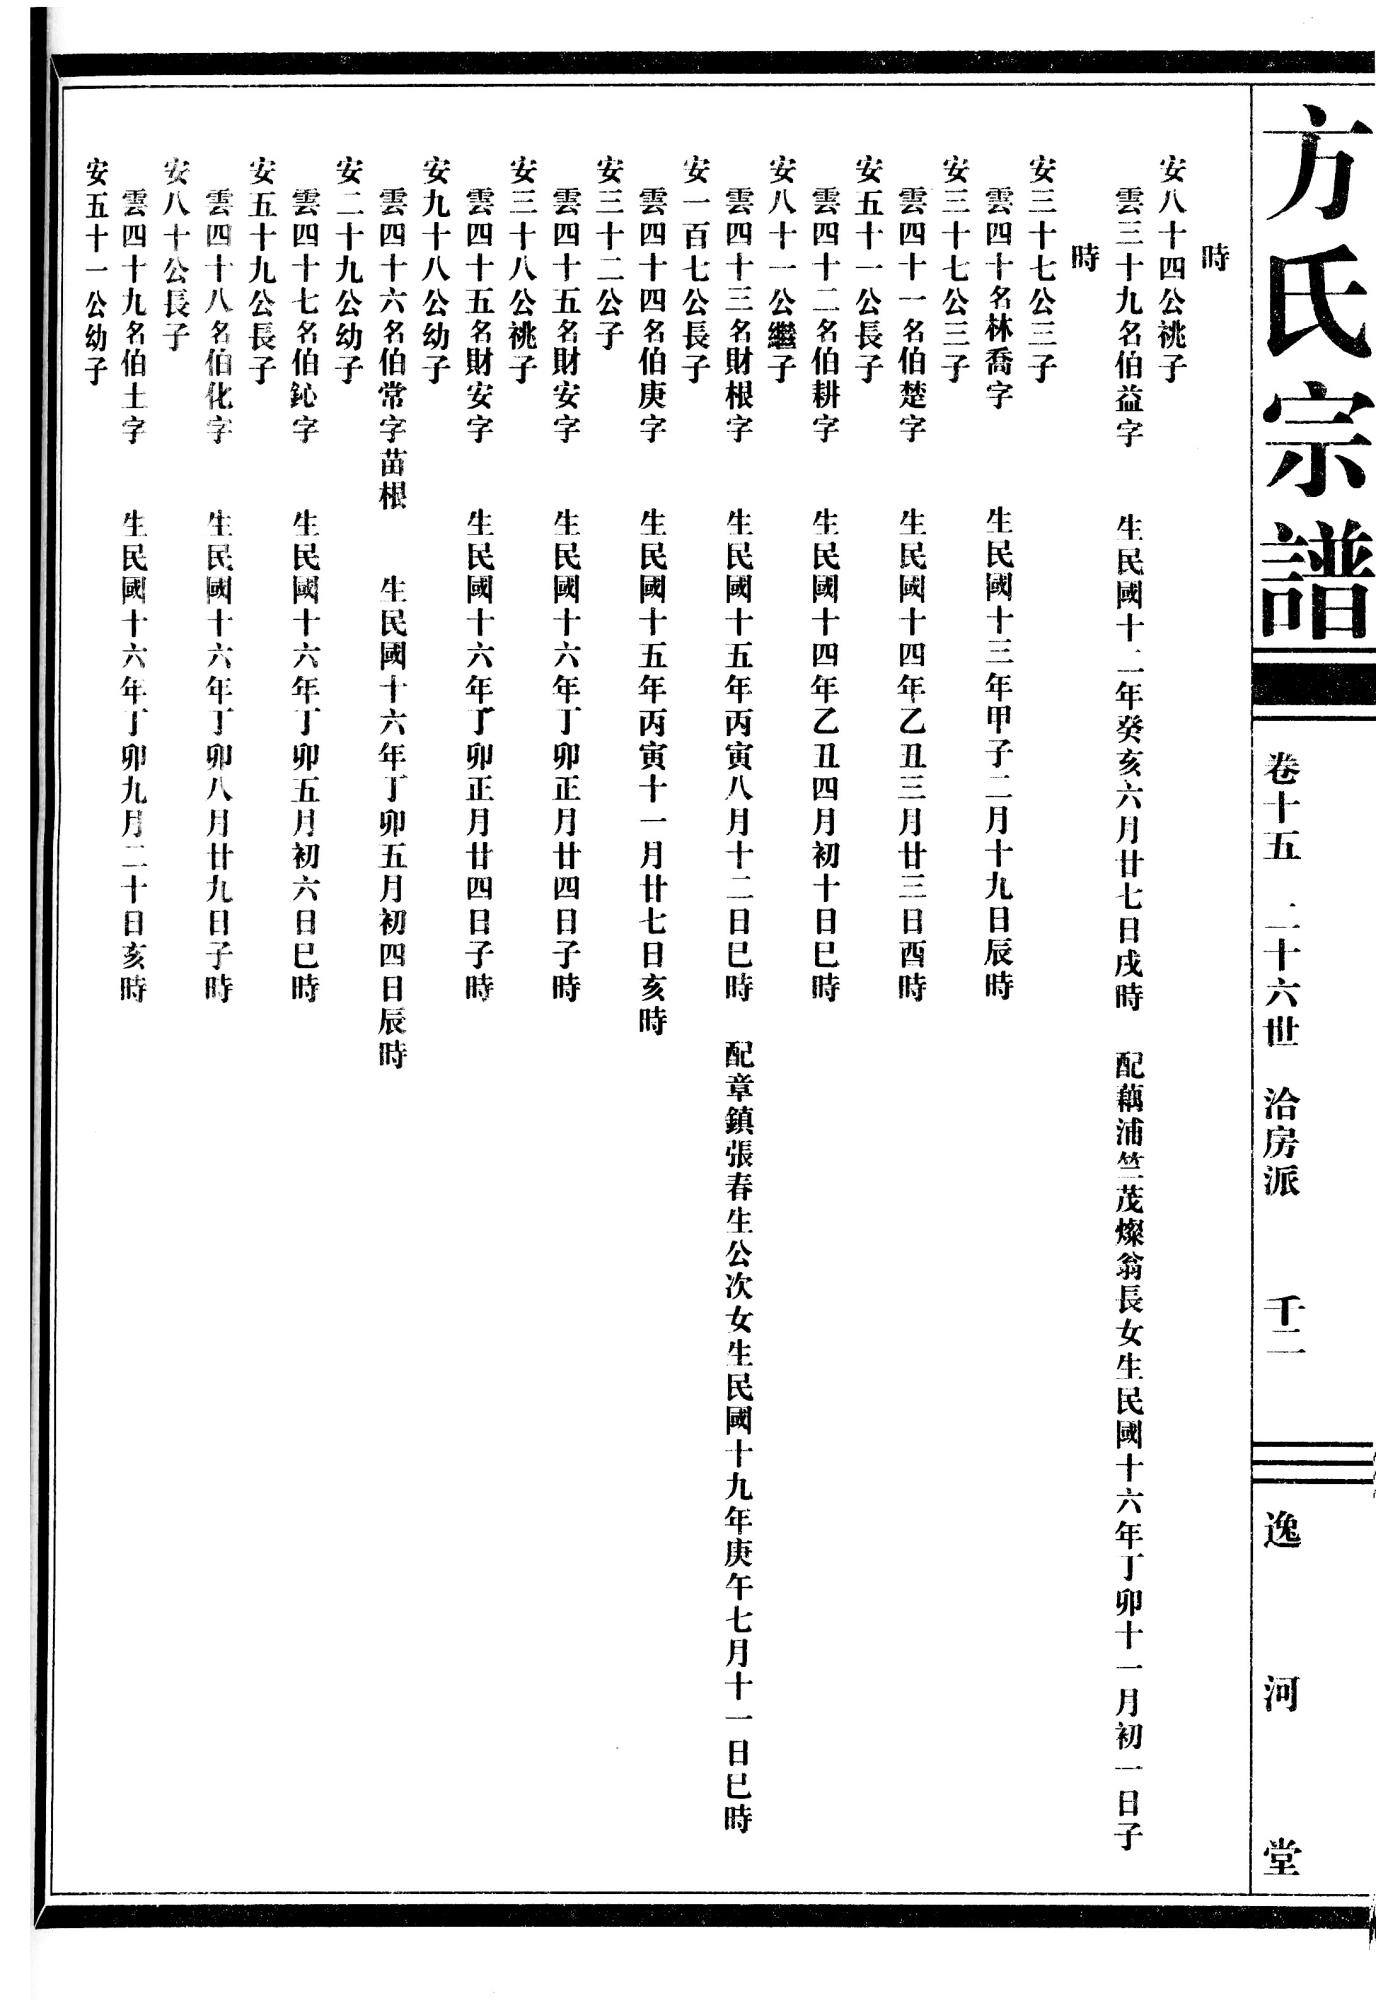 方氏宗譜
卷十五 二十六世 洽房派 千二
逸河堂
時
安八十四公祧子
雲三十九名伯益字 生民國十二年癸亥六月廿七日戌時 配藕浦竺茂燦翁長女生民國十六年丁卯十一月初一日子
時
安三十七公三子
雲四十名林喬字 生民國十三年甲子二月十九日辰時
安三十七公三子
雲四十一名伯楚字 生民國十四年乙丑三月廿三日酉時
安五十一公長子
雲四十二名伯耕字 生民國十四年乙丑四月初十日巳時
安八十一公繼子
雲四十三名財根字 生民國十五年丙寅八月十二日巳時 配章鎮張春生公次女生民國十九年庚午七月十一日巳時
安一百七公長子
雲四十四名伯庚字 生民國十五年丙寅十一月廿七日亥時
安三十二公子
雲四十五名財安字 生民國十六年丁卯正月廿四日子時
安三十八公祧子
雲四十五名財安字 生民國十六年丁卯正月廿四日子時
安九十八公幼子
雲四十六名伯常字苗根 生民國十六年丁卯五月初四日辰時
安二十九公幼子
雲四十七名伯鈊字 生民國十六年丁卯五月初六日巳時
安五十九公長子
雲四十八名伯化字 生民國十六年丁卯八月廿九日子時
安八十公長子
雲四十九名伯土字 生民國十六年丁卯九月二十日亥時
安五十一公幼子